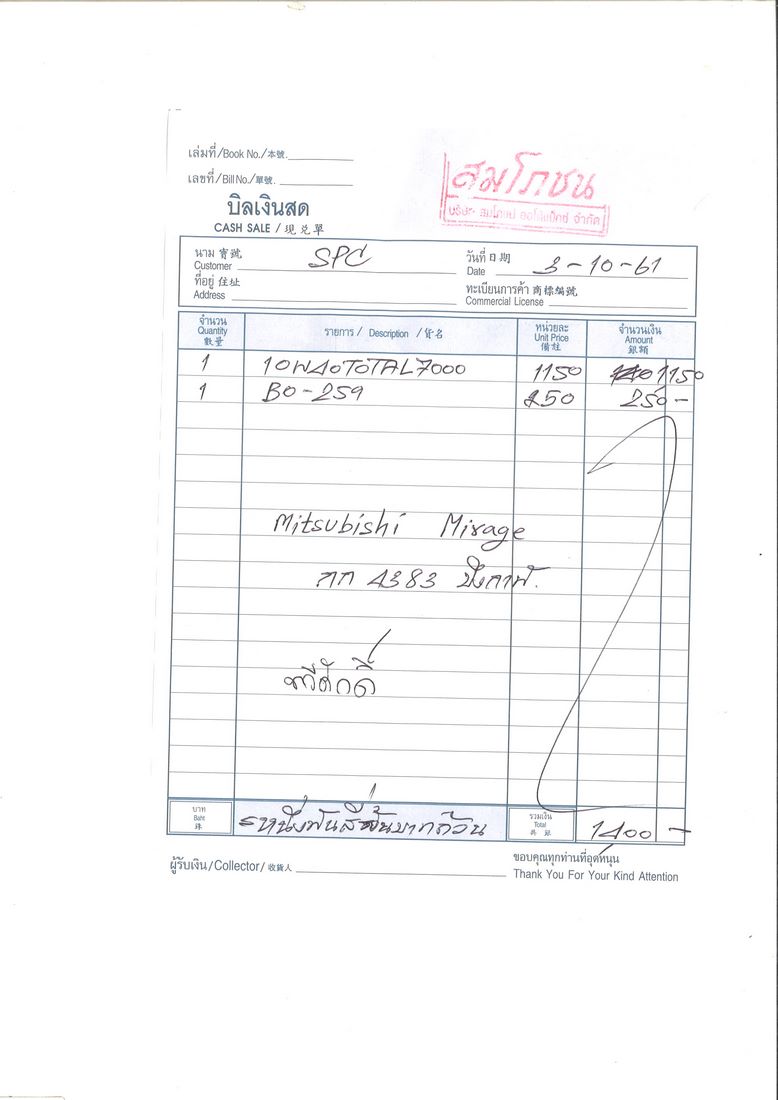 เล่มที่/Book No./本號.
เลขที่/Bill No./單號.
บิลเงินสด
CASH SALE / 現兑單
สมโภชน
บริษัท สมโภชน ออโต้แม็กซ์ จำกัด
นาม 寶號 Customer SPC
วันที่ 日期 Date 3-10-61
ที่อยู่ 住址 Address
ทะเบียนการค้า 商標編號 Commercial License
จำนวน Quantity 數量 รายการ / Description / 貨名 หน่วยละ Unit Price 備註 จำนวนเงิน Amount 銀額
1 10W40 TOTAL 7000 1150 1150
1 BO-259 250 250 -
Mitsubishi Mirage
กก 4383 บึงกาฬ.
ทวีศักดิ์
บาท Baht 銖 =หนึ่งพันสี่ บาทถ้วน รวมเงิน Total 共銀 1400 -
ผู้รับเงิน/Collector/收貨人
ขอบคุณทุกท่านที่อุดหนุน
Thank You For Your Kind Attention